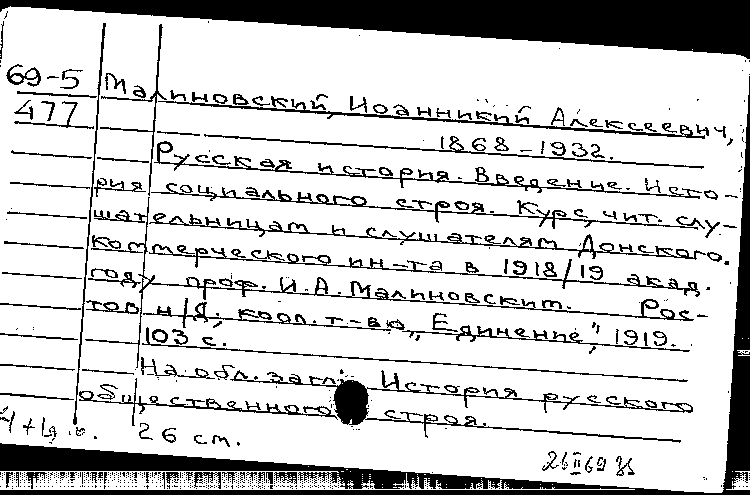 69-5 Малиновский, Иоанникий Алексеевич,
477 1868-1932.
Русская история. Введение. Исто-
рия социального строя. Курс, чит. слу-
шательницам и слушателям Донского.
Коммерческого ин-та в 1918/19 акад.
году проф. И.А. Малиновским. Рос-
тов н/Д, кооп. т-во „Единение", 1919.
103 с.
На обл. загл: История русского
общественного строя.
26 см.
26 II 69